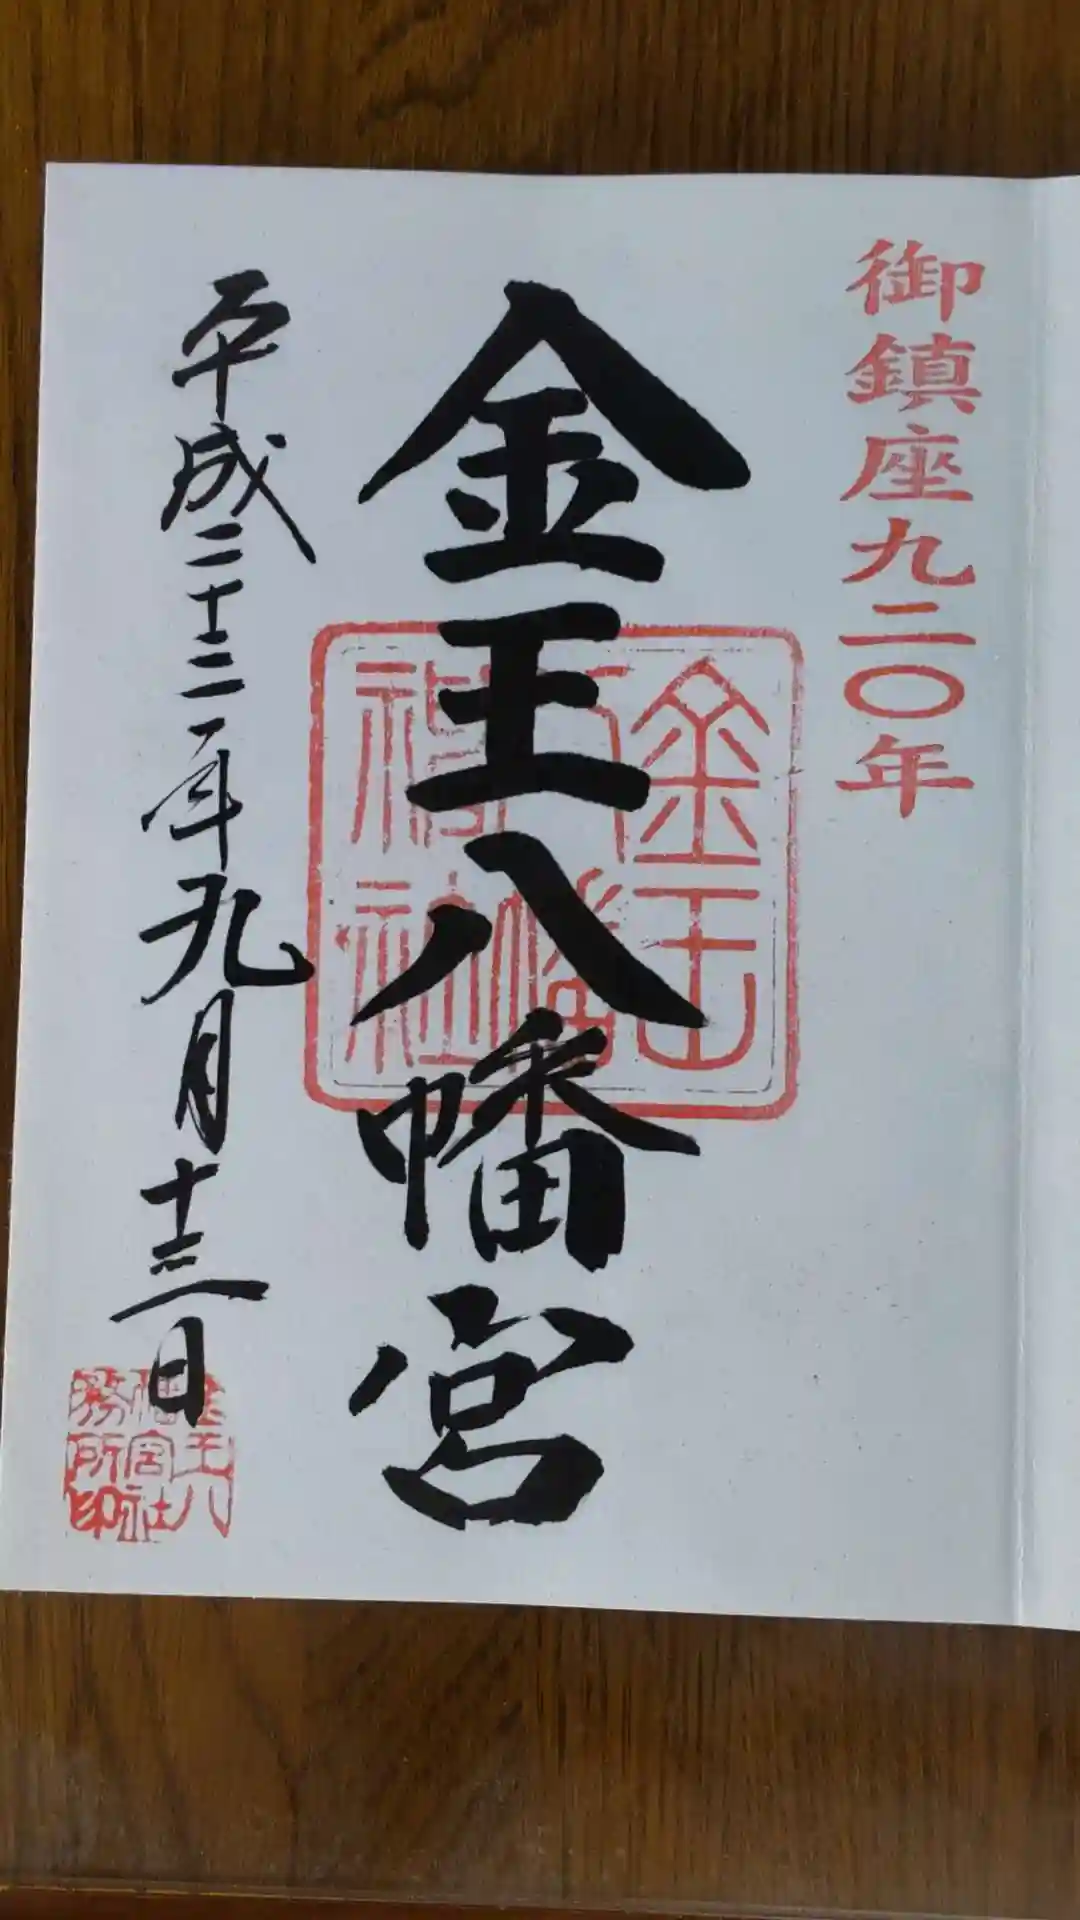 御鎮座九二〇年
金王八幡宮
金王八幡神社
平成二十二年九月十三日
金王八幡宮社務所印